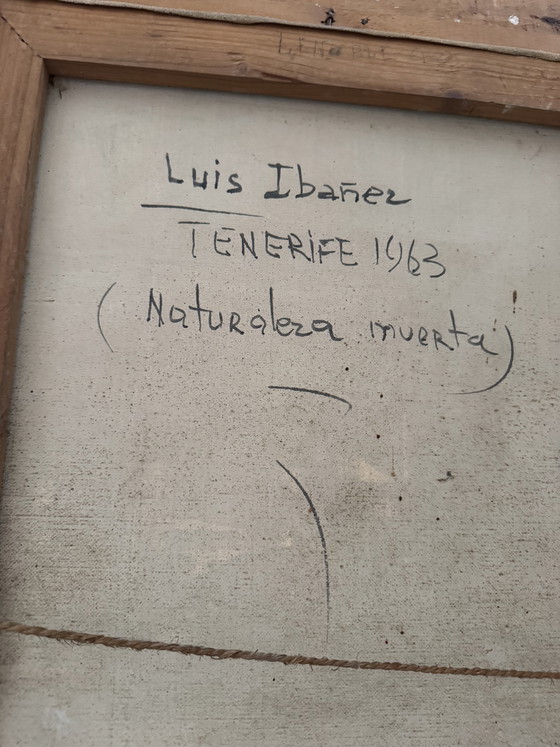 Luis Ibañez
TENERIFE 1963
(Naturaleza muerta)